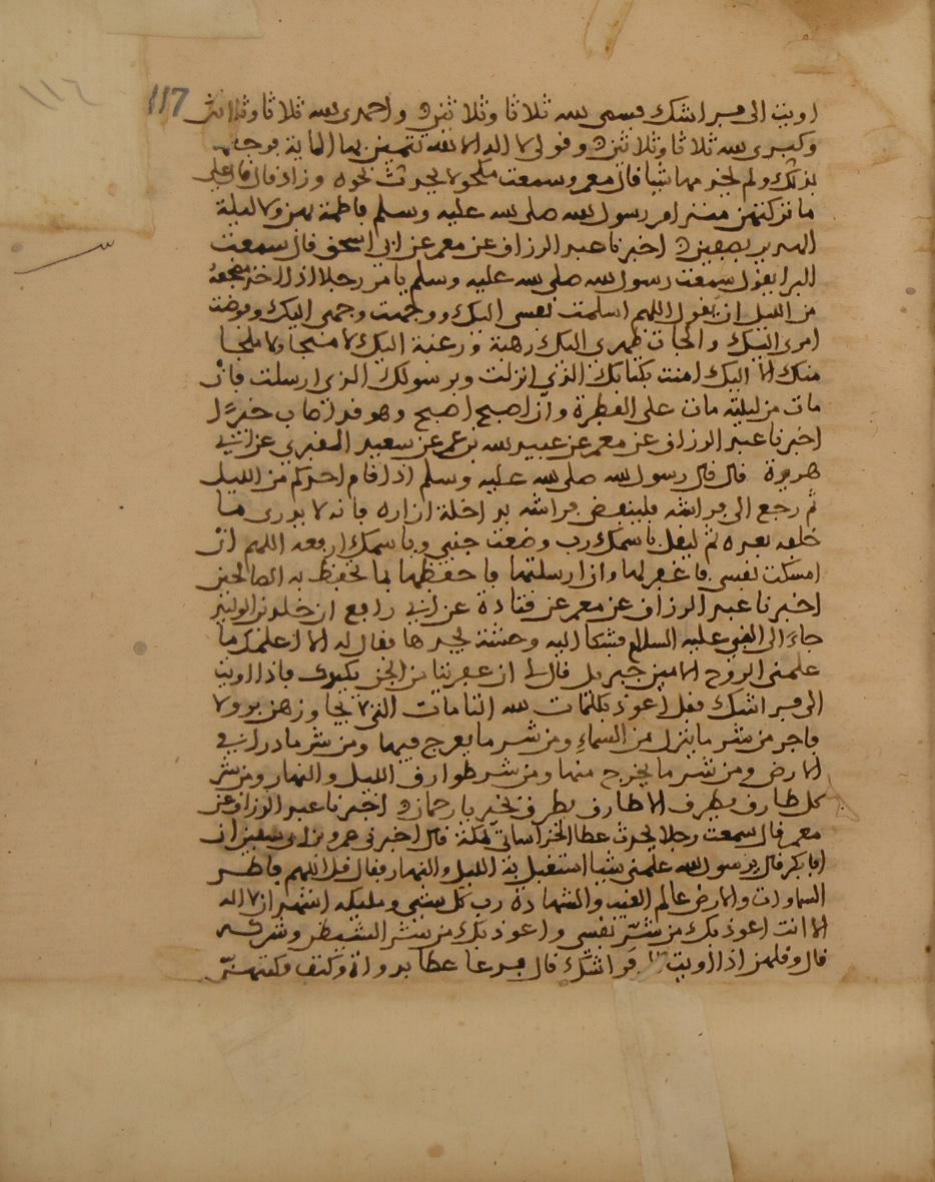 117
١١٦
اويت الى فراشك فسبحى لله ثلاثا وثلاثين واحمدى لله ثلاثا وثلاثين
وكبرى لله ثلاثا وثلاثين وقولى لا اله الا الله تتمين بها الماية فرجعت
بذلك ولم تخدمها شيا قال معمر وسمعت مكحولا يحدث نحوه وزاد قال قال على
ما تركتهن منذ امر رسول الله صلى الله عليه وسلم فاطمة بهن ولا ليلة
الهرير بصفين اخبرنا عبد الرزاق عن معمر عن ابى اسحق قال سمعت
البرا يقول سمعت رسول الله صلى الله عليه وسلم يامر رجلا اذا اخذ مضجعه
من الليل ان يقول اللهم اسلمت نفسى اليك ووجهت وجهى اليك وفوضت
امرى اليك والجات ظهرى اليك رهبة ورغبة اليك لا منجا ولا ملجا
منك الا اليك امنت بكتابك الذى انزلت وبرسولك الذى ارسلت فان
مات من ليلته مات على الفطرة وان اصبح اصبح وهو قد اصاب خيرًا
اخبرنا عبد الرزاق عن معمر عن عبيد الله بن عمر عن سعيد المقبرى عن ابى
هريرة قال قال رسول الله صلى الله عليه وسلم اذا قام احدكم من الليل
ثم رجع الى فراشه فلينفض فراشه بداخلة ازاره فانه لا يدرى ما
خلفه بعده ثم ليقل باسمك رب وضعت جنبى وباسمك ارفعه اللهم ان
امسكت نفسى فاغفر لها وان ارسلتها فاحفظها بما تحفظ به الصالحين
اخبرنا عبد الرزاق عن معمر عن قتادة عن ابى رافع ان خالد بن الوليد
جاء الى النبى عليه السلام فشكا اليه وحشة يجدها فقال له الا اعلمك ما
علمنى الروح الامين جبريل قال لى ان عفريتا من الجن يكيدك فاذا اويت
الى فراشك فقل اعوذ بكلمات الله التامات التى لا يجاوزهن بر ولا
فاجر من شر ما ينزل من السماء ومن شر ما يعرج فيها ومن شر ما ذرا فى
الارض ومن شر ما يخرج منها ومن شر طوارق الليل والنهار ومن شر
كل طارق يطرق الا طارق يطرق بخير يا رحمان اخبرنا عبد الرزاق عن
معمر قال سمعت رجلا يحدث عطا الخراسانى بمكة قال اخبرنى عمرو بن ابى سفين ان
ابا بكر قال يرسول الله علمنى شيا استقبل به الليل والنهار فقال قل اللهم فاطر
السماوات والارض عالم الغيب والشهادة رب كل شىء ومليكه اشهد ان لا اله
الا انت اعوذ بك من شر نفسى واعوذ بك من شر الشيطن وشركه
قال وقلهن اذا اويت الى فراشك قال فدعا عطا بدواة وكتف فكتبهن